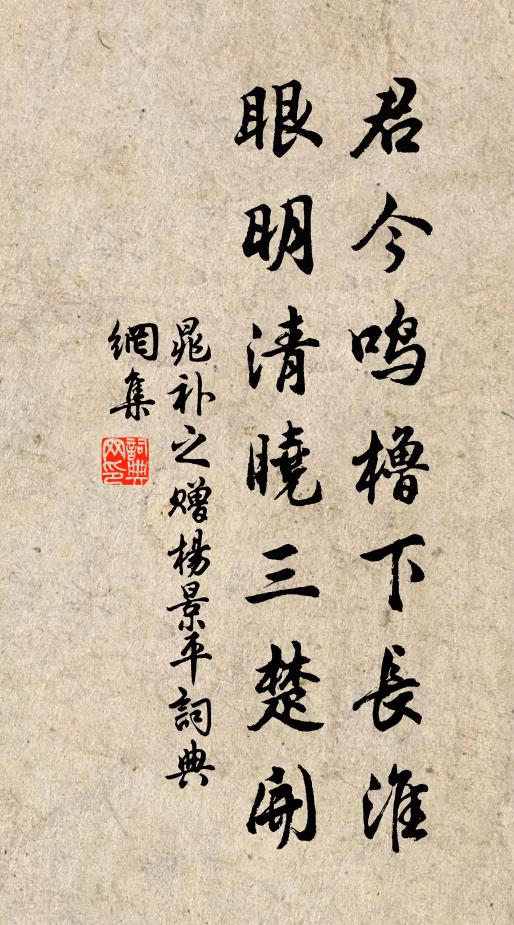 君今鳴櫓下長淮
眼明清曉三楚開
晁补之赠楊景平詞典
網集
詞典网印